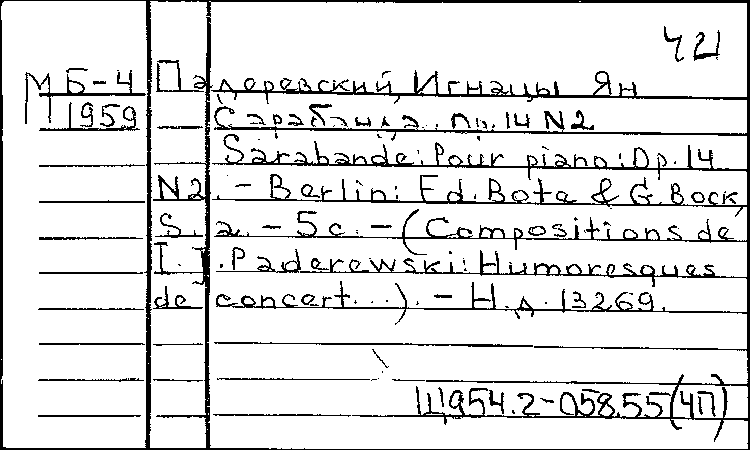 421
М Б-4 Падеревский, Игнацы Ян
1959 Сарабанда. Op. 14 N2
Sarabande: Pour piano: Op. 14
N2. - Berlin: Ed. Bote & G. Bock,
S. a. - 5 c. - (Compositions de
I. J. Paderewski: Humoresques
de concert...). - Н. д. 13269.
Щ954.2-058.55(4П)